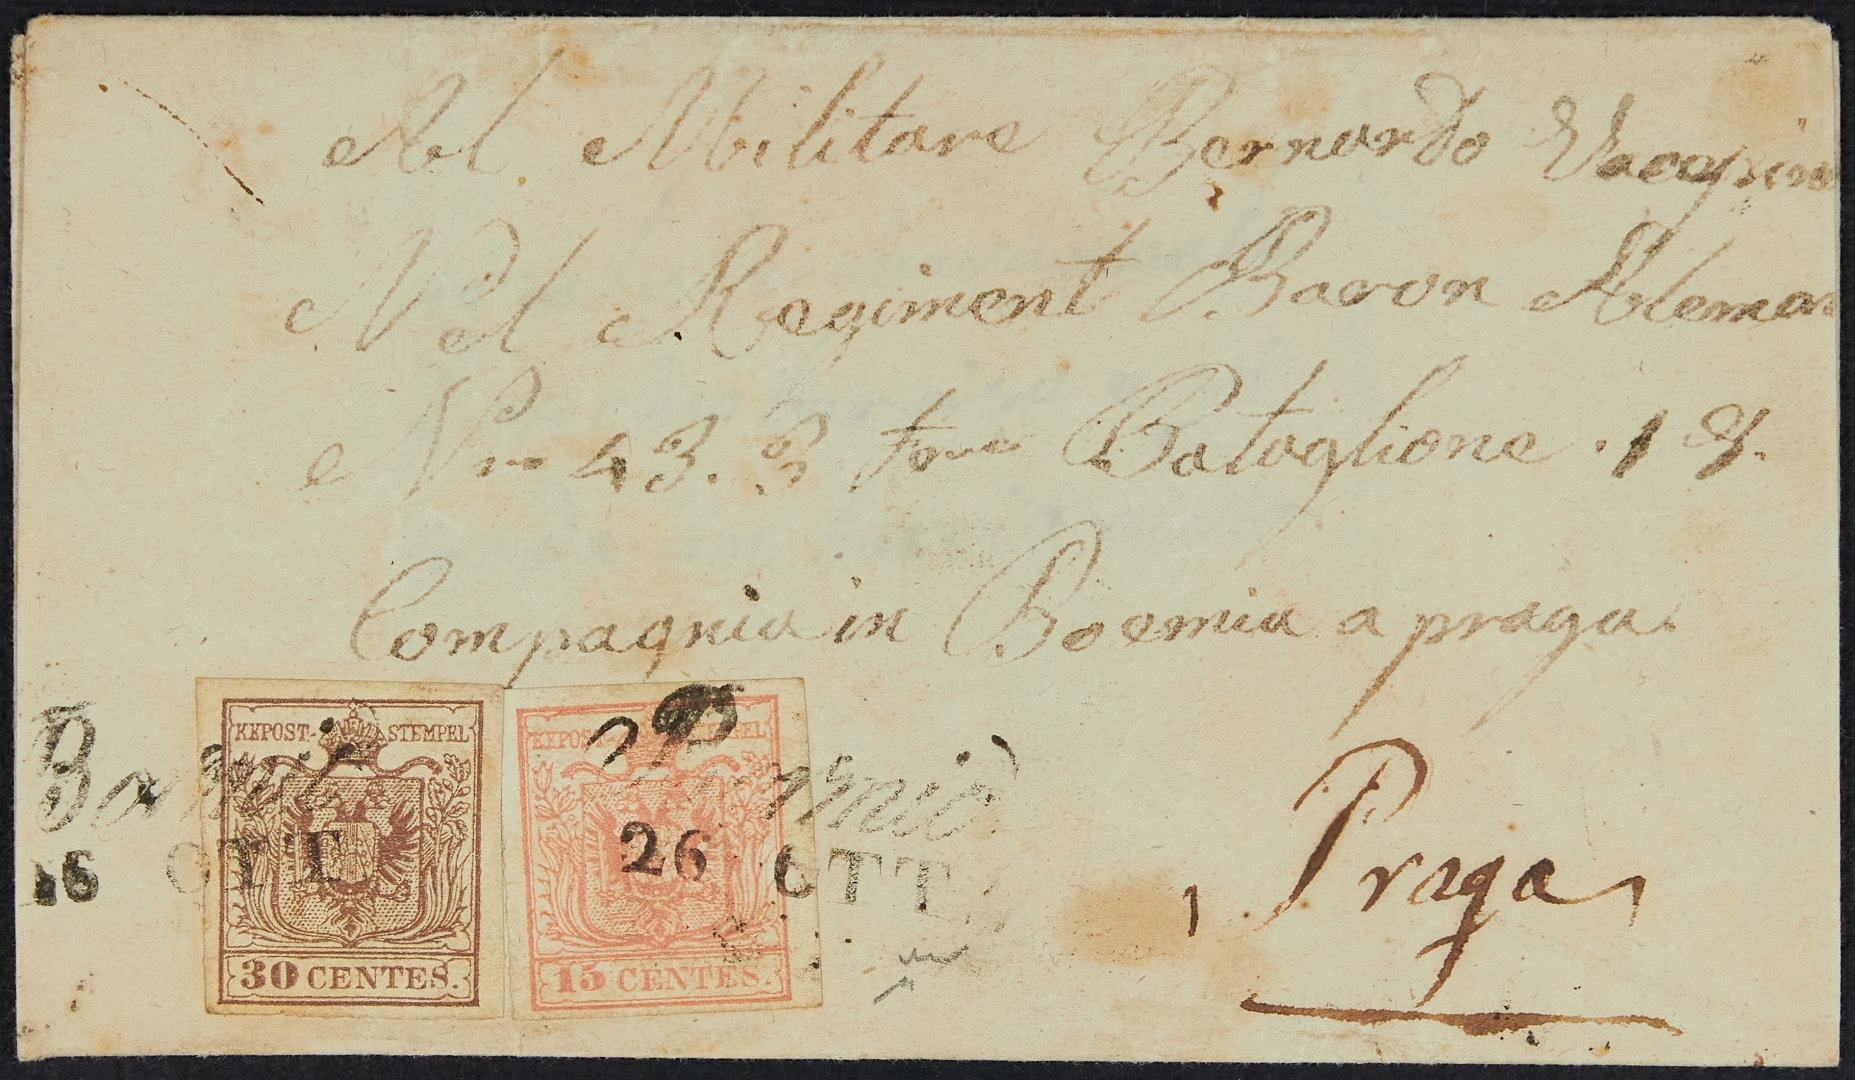 Al Militare Bernardo
Nel Regiment Baron Aleman
Nro 43. 3 Bataglione. 18.
Compagnia in Boemia a praga.
KKPOST-STEMPEL
30 CENTES.
KKPOST-STEMPEL
15 CENTES.
26 OTT
26 OTT
Praga